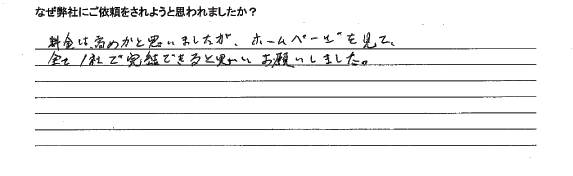 なぜ弊社にご依頼をされようと思われましたか？
料金は、高めかと思いましたが、ホームページを見て、
全て1社で完結できると思い お願いしました。